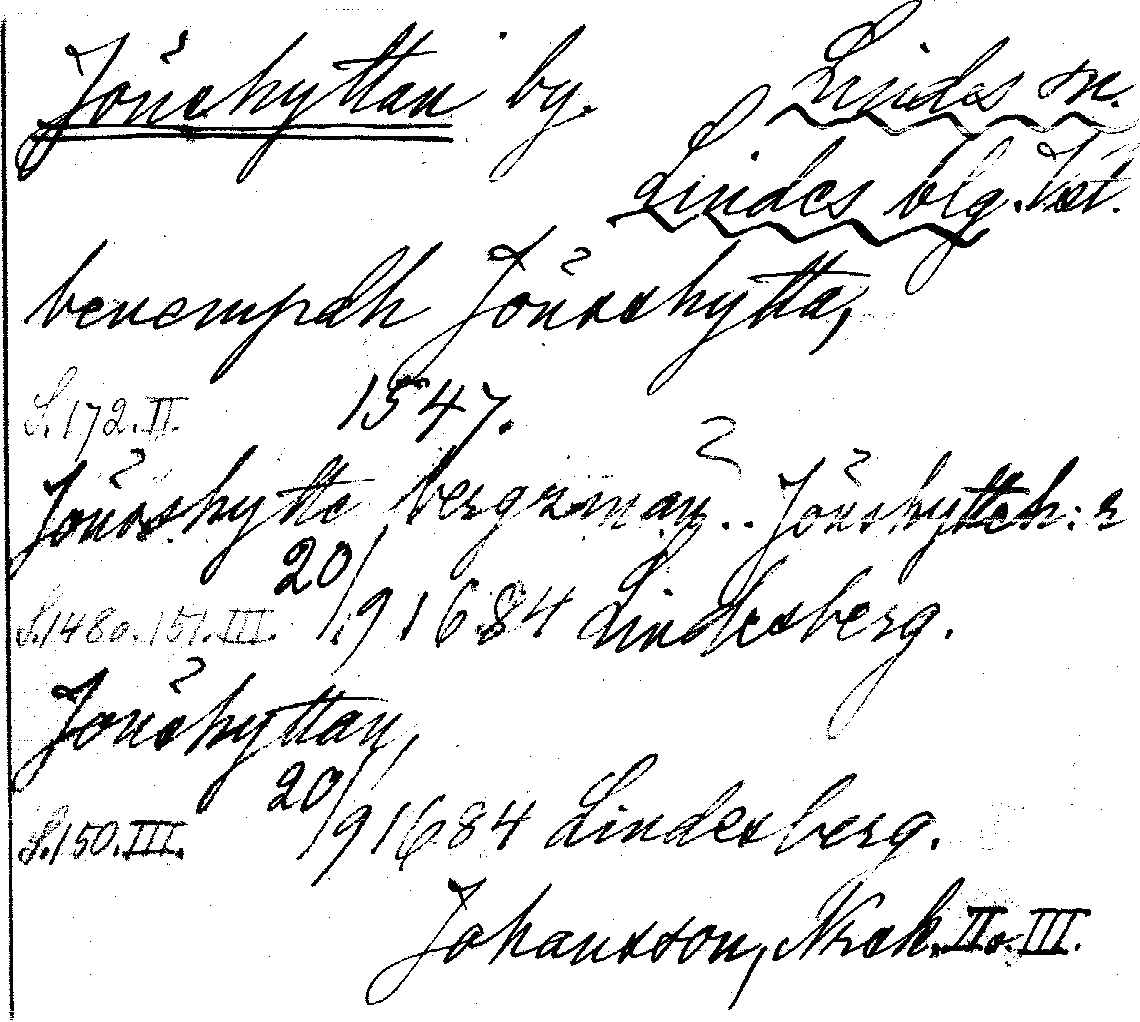 Jönshyttan by. Lindes sn.
Lindes blg. Vstl.
benempdh Jönsshytta,
S. 172. II. 1547.
Jönsshytte bergzman .. Jönshytteh:r
S. 148 o. 151. III. 20/9 1684 Lindesberg.
Jönshyttan,
S. 150. III. 20/9 1684 Lindesberg.
Johansson, Norak. II o. III.